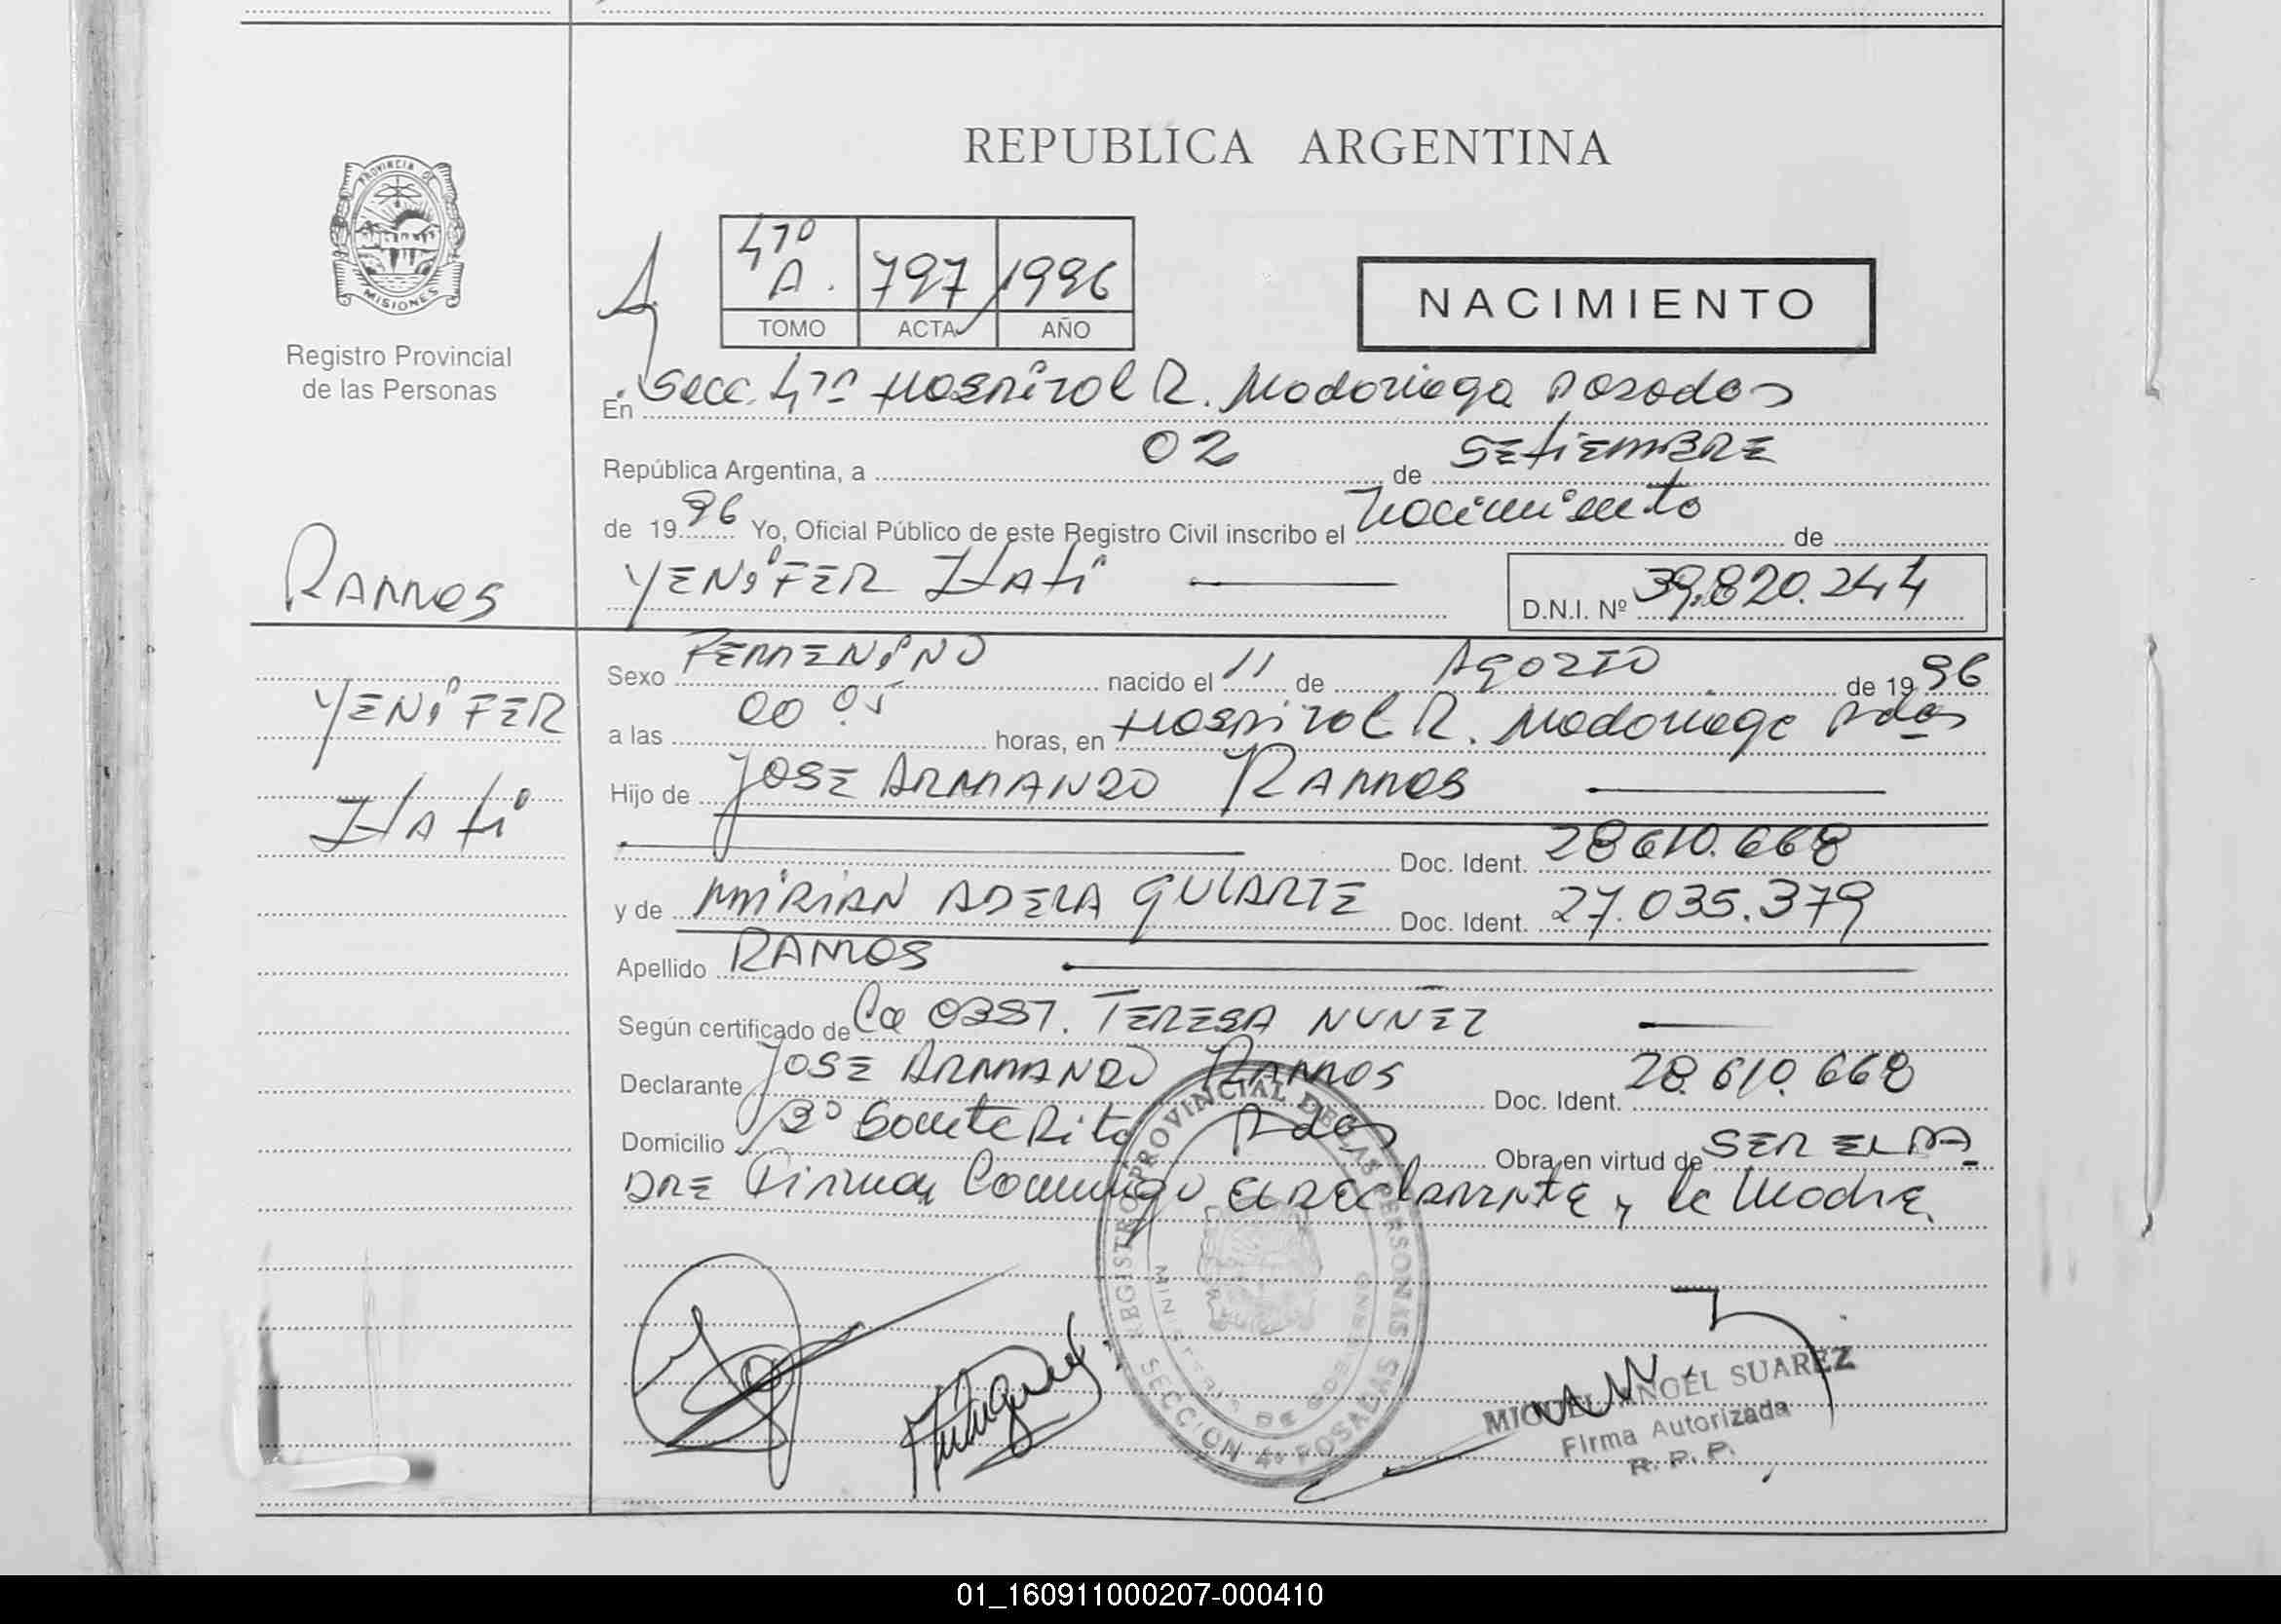 REPUBLICA ARGENTINA
PROVINCIA DE
MISIONES
Registro Provincial
de las Personas
4to A. 797 1996
TOMO ACTA AÑO
NACIMIENTO
En Secc. 4ta Hospital R. Madariaga Posadas
República Argentina, a 02 de SEtiEMBRE
de 1996 Yo, Oficial Público de este Registro Civil inscribo el Nacimiento de
YENiFER ItAti D.N.I. Nº 39.820.244
RAMOS
YENiFER
ItAti
Sexo FEMENiNO nacido el 11 de AgOSTO de 1996
a las 00 05 horas, en Hospital R. Madariaga Pdas
Hijo de JOSE ARMANDO RAMOS
Doc. Ident. 28.610.668
y de MiRiAN ADELA GULARTE Doc. Ident. 27.035.379
Apellido RAMOS
Según certificado de La OBST. TERESA NUÑEZ
Declarante JOSE ARMANDO RAMOS Doc. Ident. 28.610.668
Domicilio Bº Santa Rita Pdas Obra en virtud de SER EL PA
DRE Firman Conmigo EL DEClARANtE y la Madre
REGISTRO PROVINCIAL DE LAS PERSONAS
MINISTERIO DE GOBIERNO
SECCION 4a POSADAS
MIGUEL ANGEL SUAREZ
Firma Autorizada
R. P. P.
01_160911000207-000410